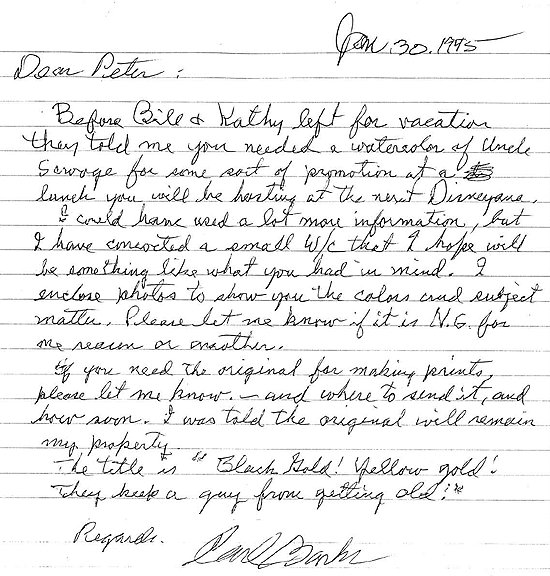 Jan. 30. 1995
Dear Peter:
Before Bill & Kathy left for vacation
they told me you needed a watercolor of Uncle
Scrooge for some sort of promotion at a
lunch you will be hosting at the next Disneyana.
I could have used a lot more information, but
I have concocted a small W/c that I hope will
be something like what you had in mind. I
enclose photos to show you the colors and subject
matter. Please let me know if it is N.G. for
one reason or another.
If you need the original for making prints,
please let me know. – and where to send it, and
how soon. I was told the original will remain
my property.
The title is "Black Gold! Yellow gold!
They keep a guy from getting old!"
Regards.
Carl Barks